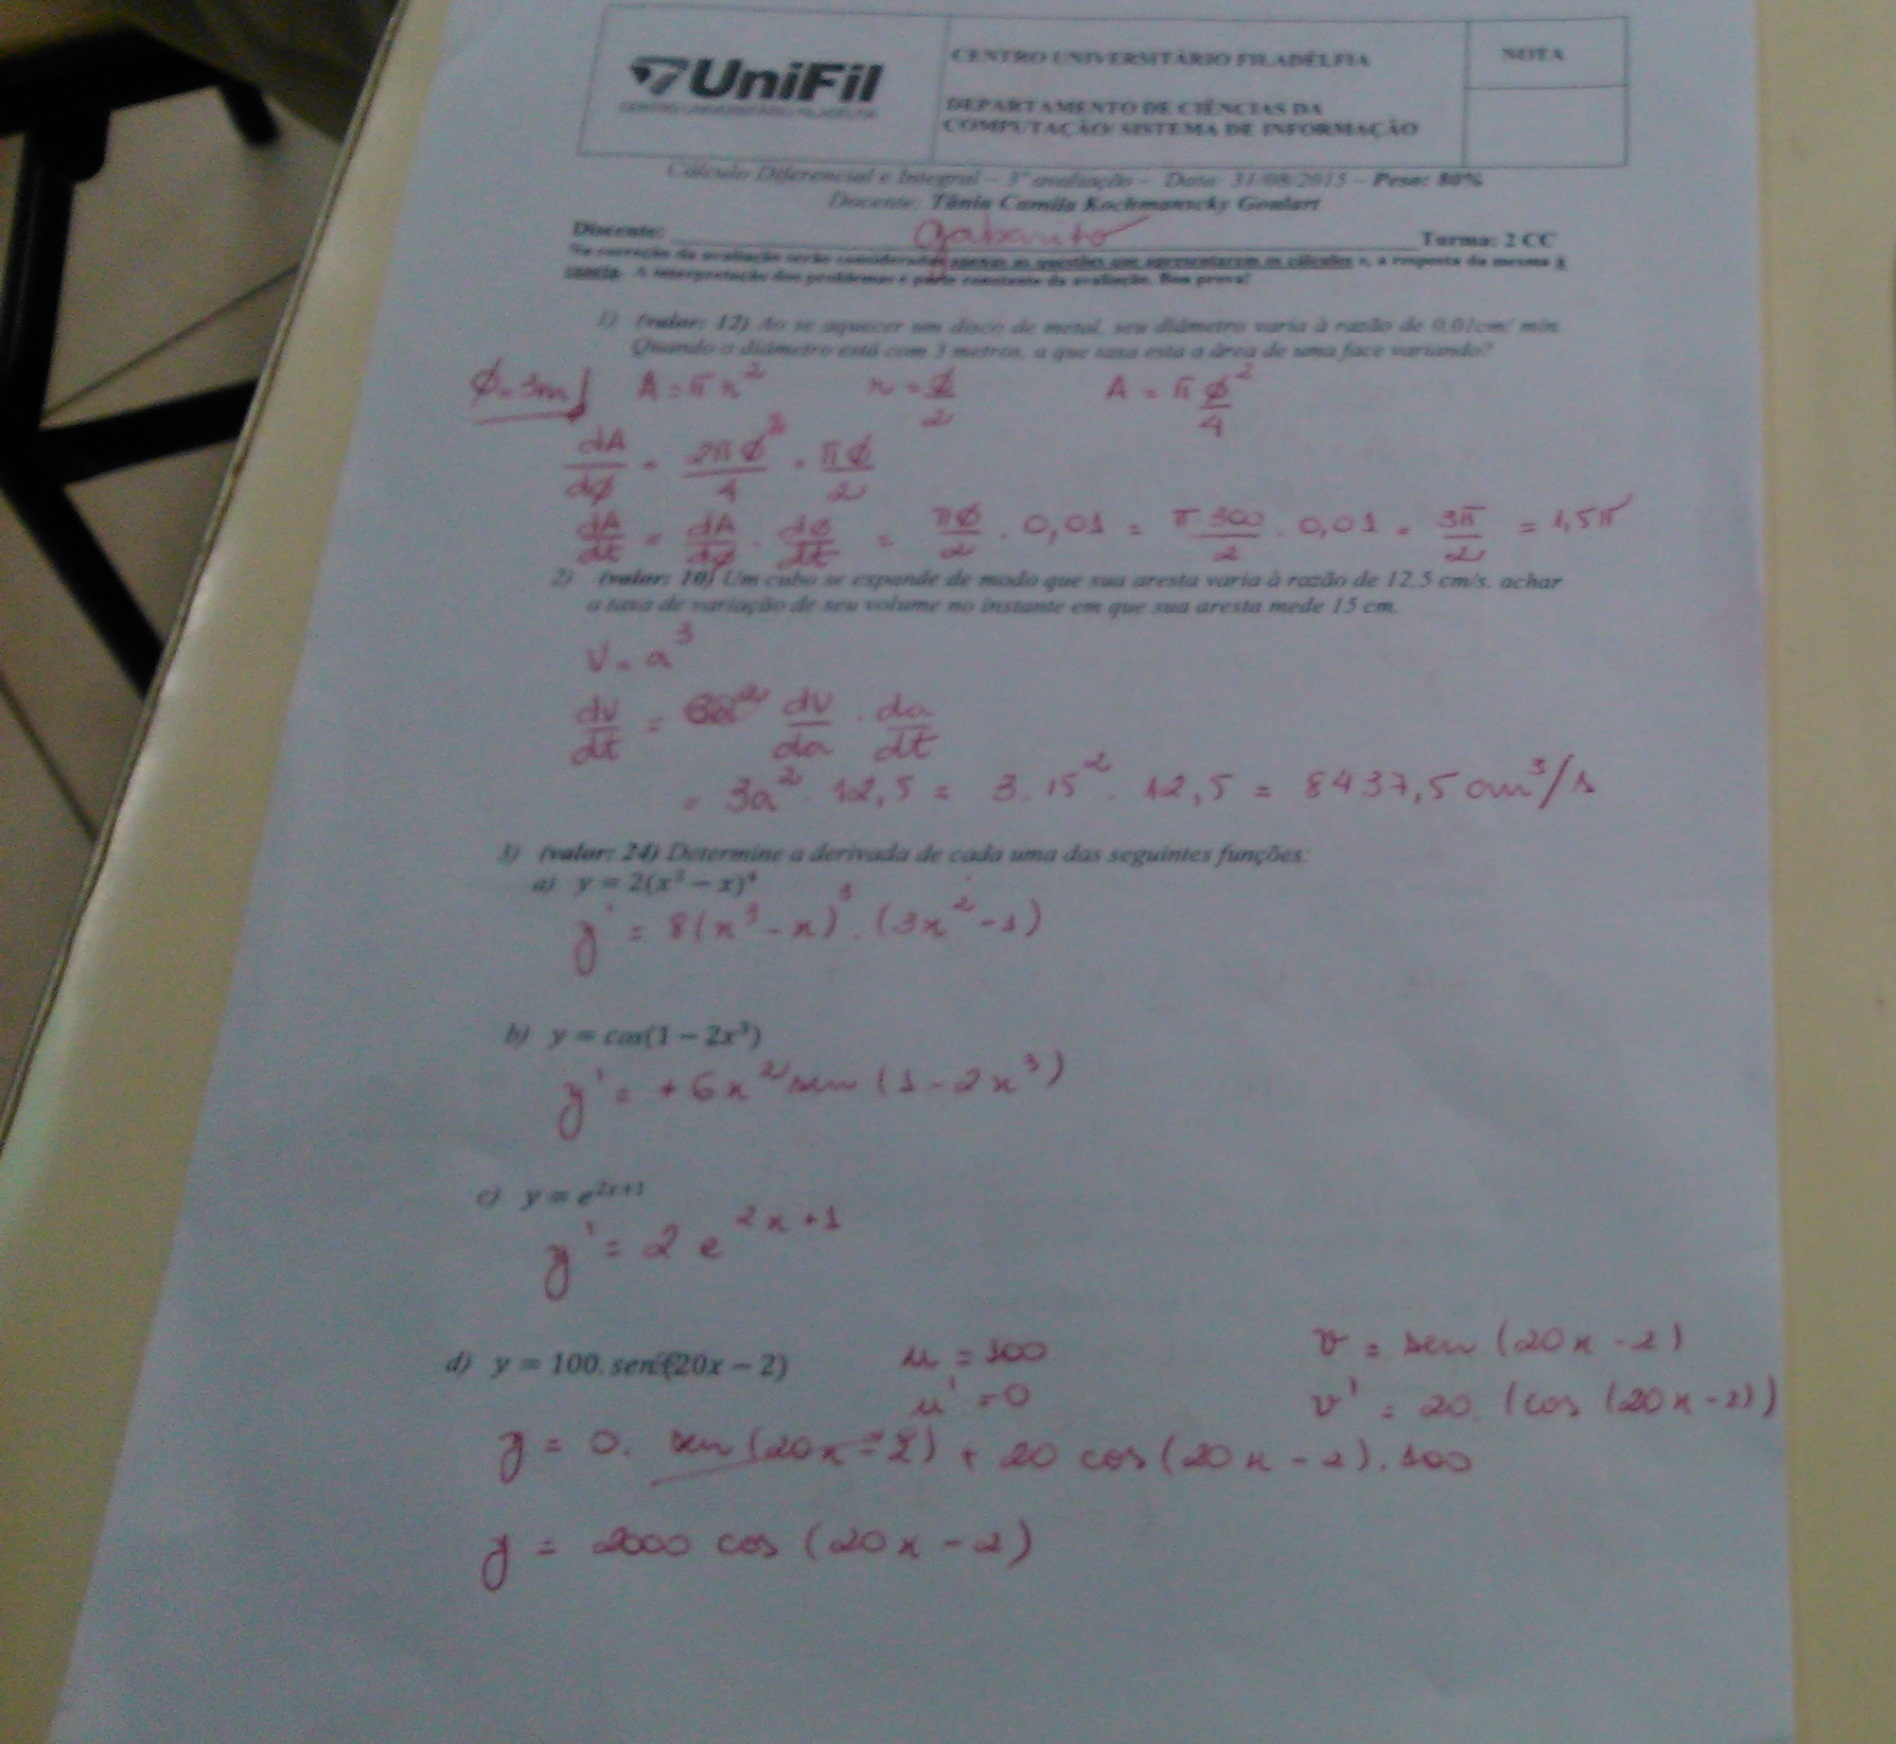 UniFil
CENTRO UNIVERSITÁRIO FILADÉLFIA
CENTRO UNIVERSITÁRIO FILADÉLFIA
NOTA
DEPARTAMENTO DE CIÊNCIAS DA
COMPUTAÇÃO/ SISTEMA DE INFORMAÇÃO
Cálculo Diferencial e Integral – 3ª avaliação – Data: 31/08/2015 – Peso: 80%
Docente: Tânia Camila Kochmanscky Goulart
Discente: Gabarito Turma: 2 CC
Na correção da avaliação serão consideradas apenas as questões que apresentarem os cálculos e, a resposta da mesma à
caneta. A interpretação dos problemas é parte constante da avaliação. Boa prova!
1) (valor: 12) Ao se aquecer um disco de metal, seu diâmetro varia à razão de 0,01cm/ min.
Quando o diâmetro está com 3 metros, a que taxa esta a área de uma face variando?
ϕ = 3m A = πr² r = ϕ/2 A = π ϕ²/4
dA/dϕ = 2πϕ/4 = πϕ/2
dA/dt = dA/dϕ · dϕ/dt = πϕ/2 . 0,01 = π 300/2 . 0,01 = 3π/2 = 1,5π
2) (valor: 10) Um cubo se expande de modo que sua aresta varia à razão de 12,5 cm/s. achar
a taxa de variação de seu volume no instante em que sua aresta mede 15 cm.
V = a³
dV/dt = dV/da . da/dt
= 3a² . 12,5 = 3 . 15² . 12,5 = 8437,5 cm³/s
3) (valor: 24) Determine a derivada de cada uma das seguintes funções:
a) y = 2(x³ − x)⁴
y' = 8(x³ − x)³ . (3x² − 1)
b) y = cos(1 − 2x³)
y' = +6x² sen (1 − 2x³)
c) y = e²ˣ⁺¹
y' = 2 e²ˣ⁺¹
d) y = 100. sen(20x − 2) u = 100 v = sen (20x − 2)
u' = 0 v' = 20. (cos (20x − 2))
y = 0. sen(20x − 2) + 20 cos(20x − 2) . 100
y = 2000 cos (20x − 2)